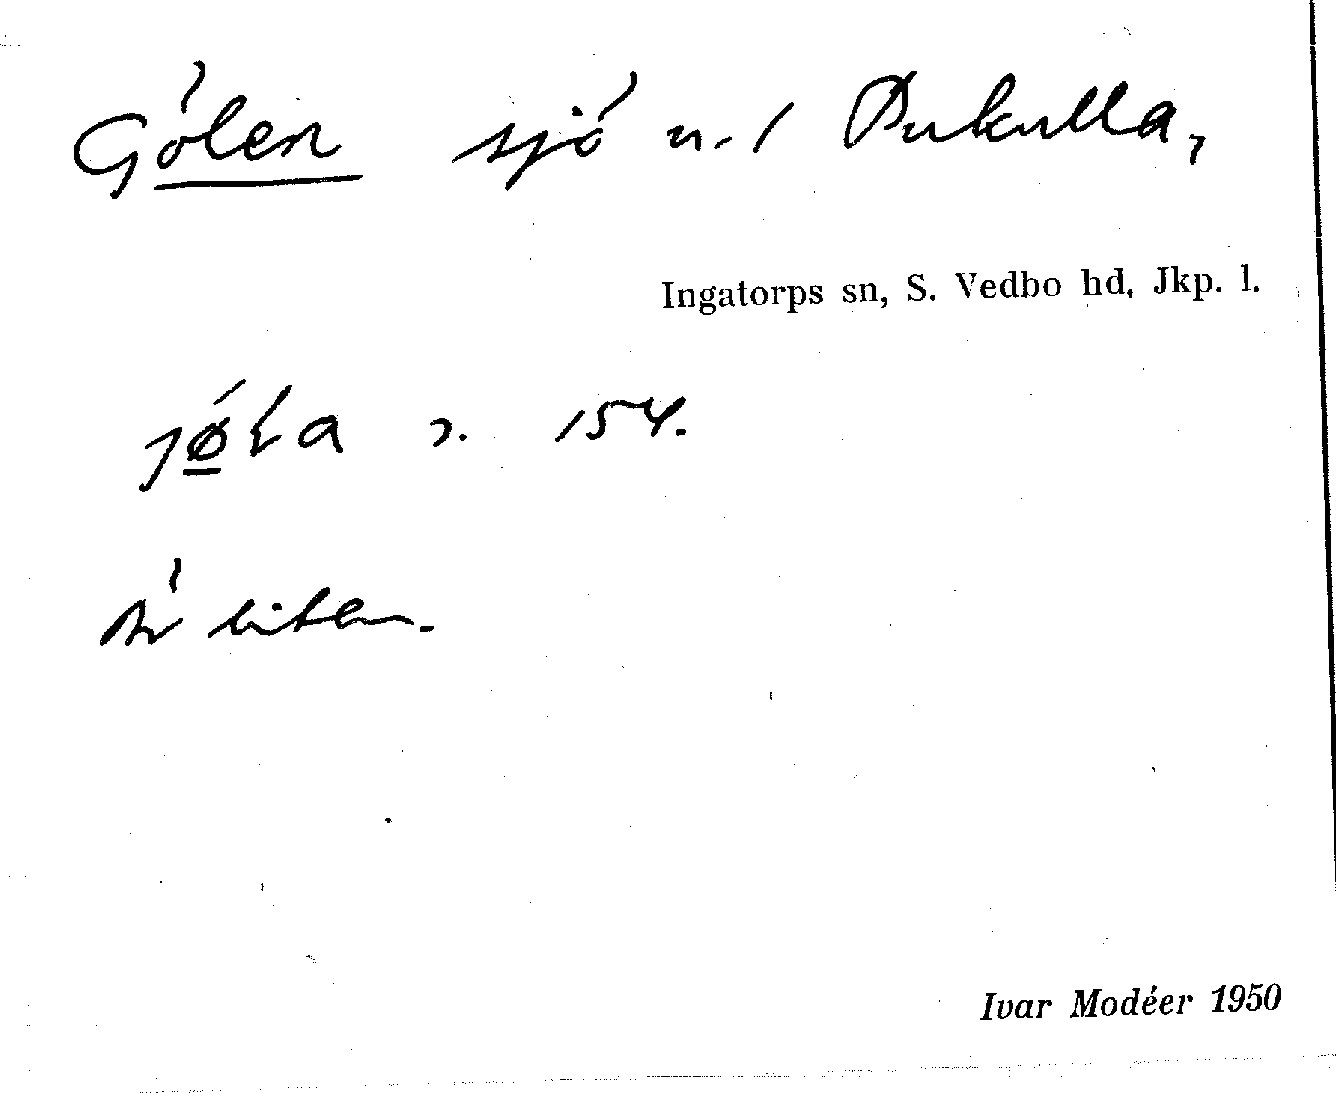 Gölen sjö u. / Pukulla,
Ingatorps sn, S. Vedbo hd, Jkp. l.
154.
Är liten.
Ivar Modéer 1950